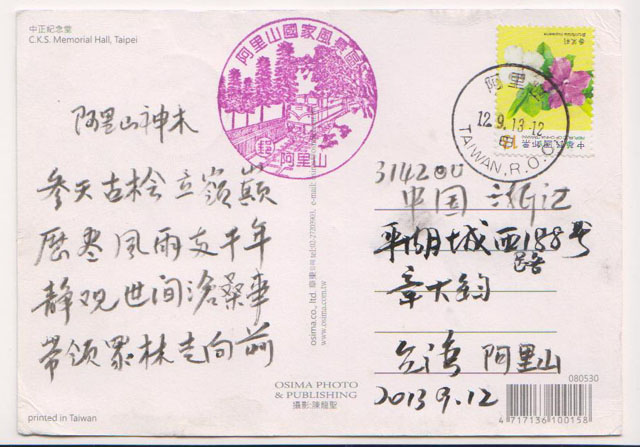 中正紀念堂
C.K.S. Memorial Hall, Taipei
阿里山神木
参天古桧立嶺巔
歷尽風雨支千年
静观世间沧桑事
带领眾林走向前
printed in Taiwan
阿里山國家風景區
阿里山
osima.co., ltd
www.osima.com.tw
OSIMA PHOTO
& PUBLISHING
攝影:陳龍聖
阿里山
12.9.13-12
甲
TAIWAN.R.O.C.
中華民國郵票
314200
中国 浙江
平湖城西188号
路
章大钧
台湾 阿里山
2013.9.12
080530
4 717136 100158